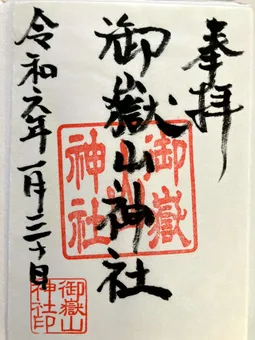 奉拝
御嶽山神社
令和六年一月三十日
御嶽
山
神社
御嶽山
神社印